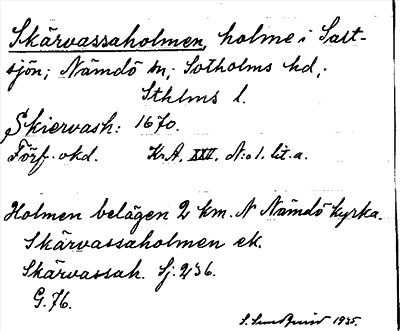 Skärvassaholmen, holme i Salt-
sjön; Nämdö sn; Sotholms hd,
Sthlms l.
Skiervash: 1670.
Förf. okd. Kr.A. XXVI, N:o 1. lit. a.
Holmen belägen 2 km. N Nämdö kyrka.
Skärvassaholmen ek.
Skärvassah. Sj: 236.
G. 76.
S. Sundbund 1935.